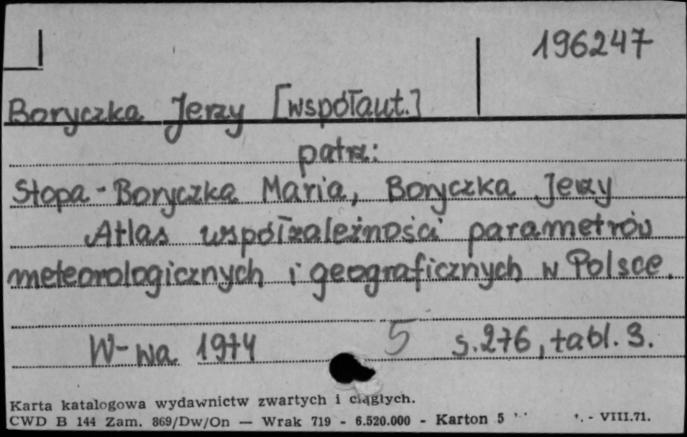 196247
Boryczka Jerzy [współaut.]
patrz:
Stopa-Boryczka Maria, Boryczka Jerzy
Atlas współzależności parametrów
meteorologicznych i geograficznych w Polsce.
W-wa 1974 5 s. 276, tabl. 3.
Karta katalogowa wydawnictw zwartych i ciągłych.
CWD B 144 Zam. 869/Dw/On — Wrak 719 - 6.520.000 - Karton 5 - VIII.71.